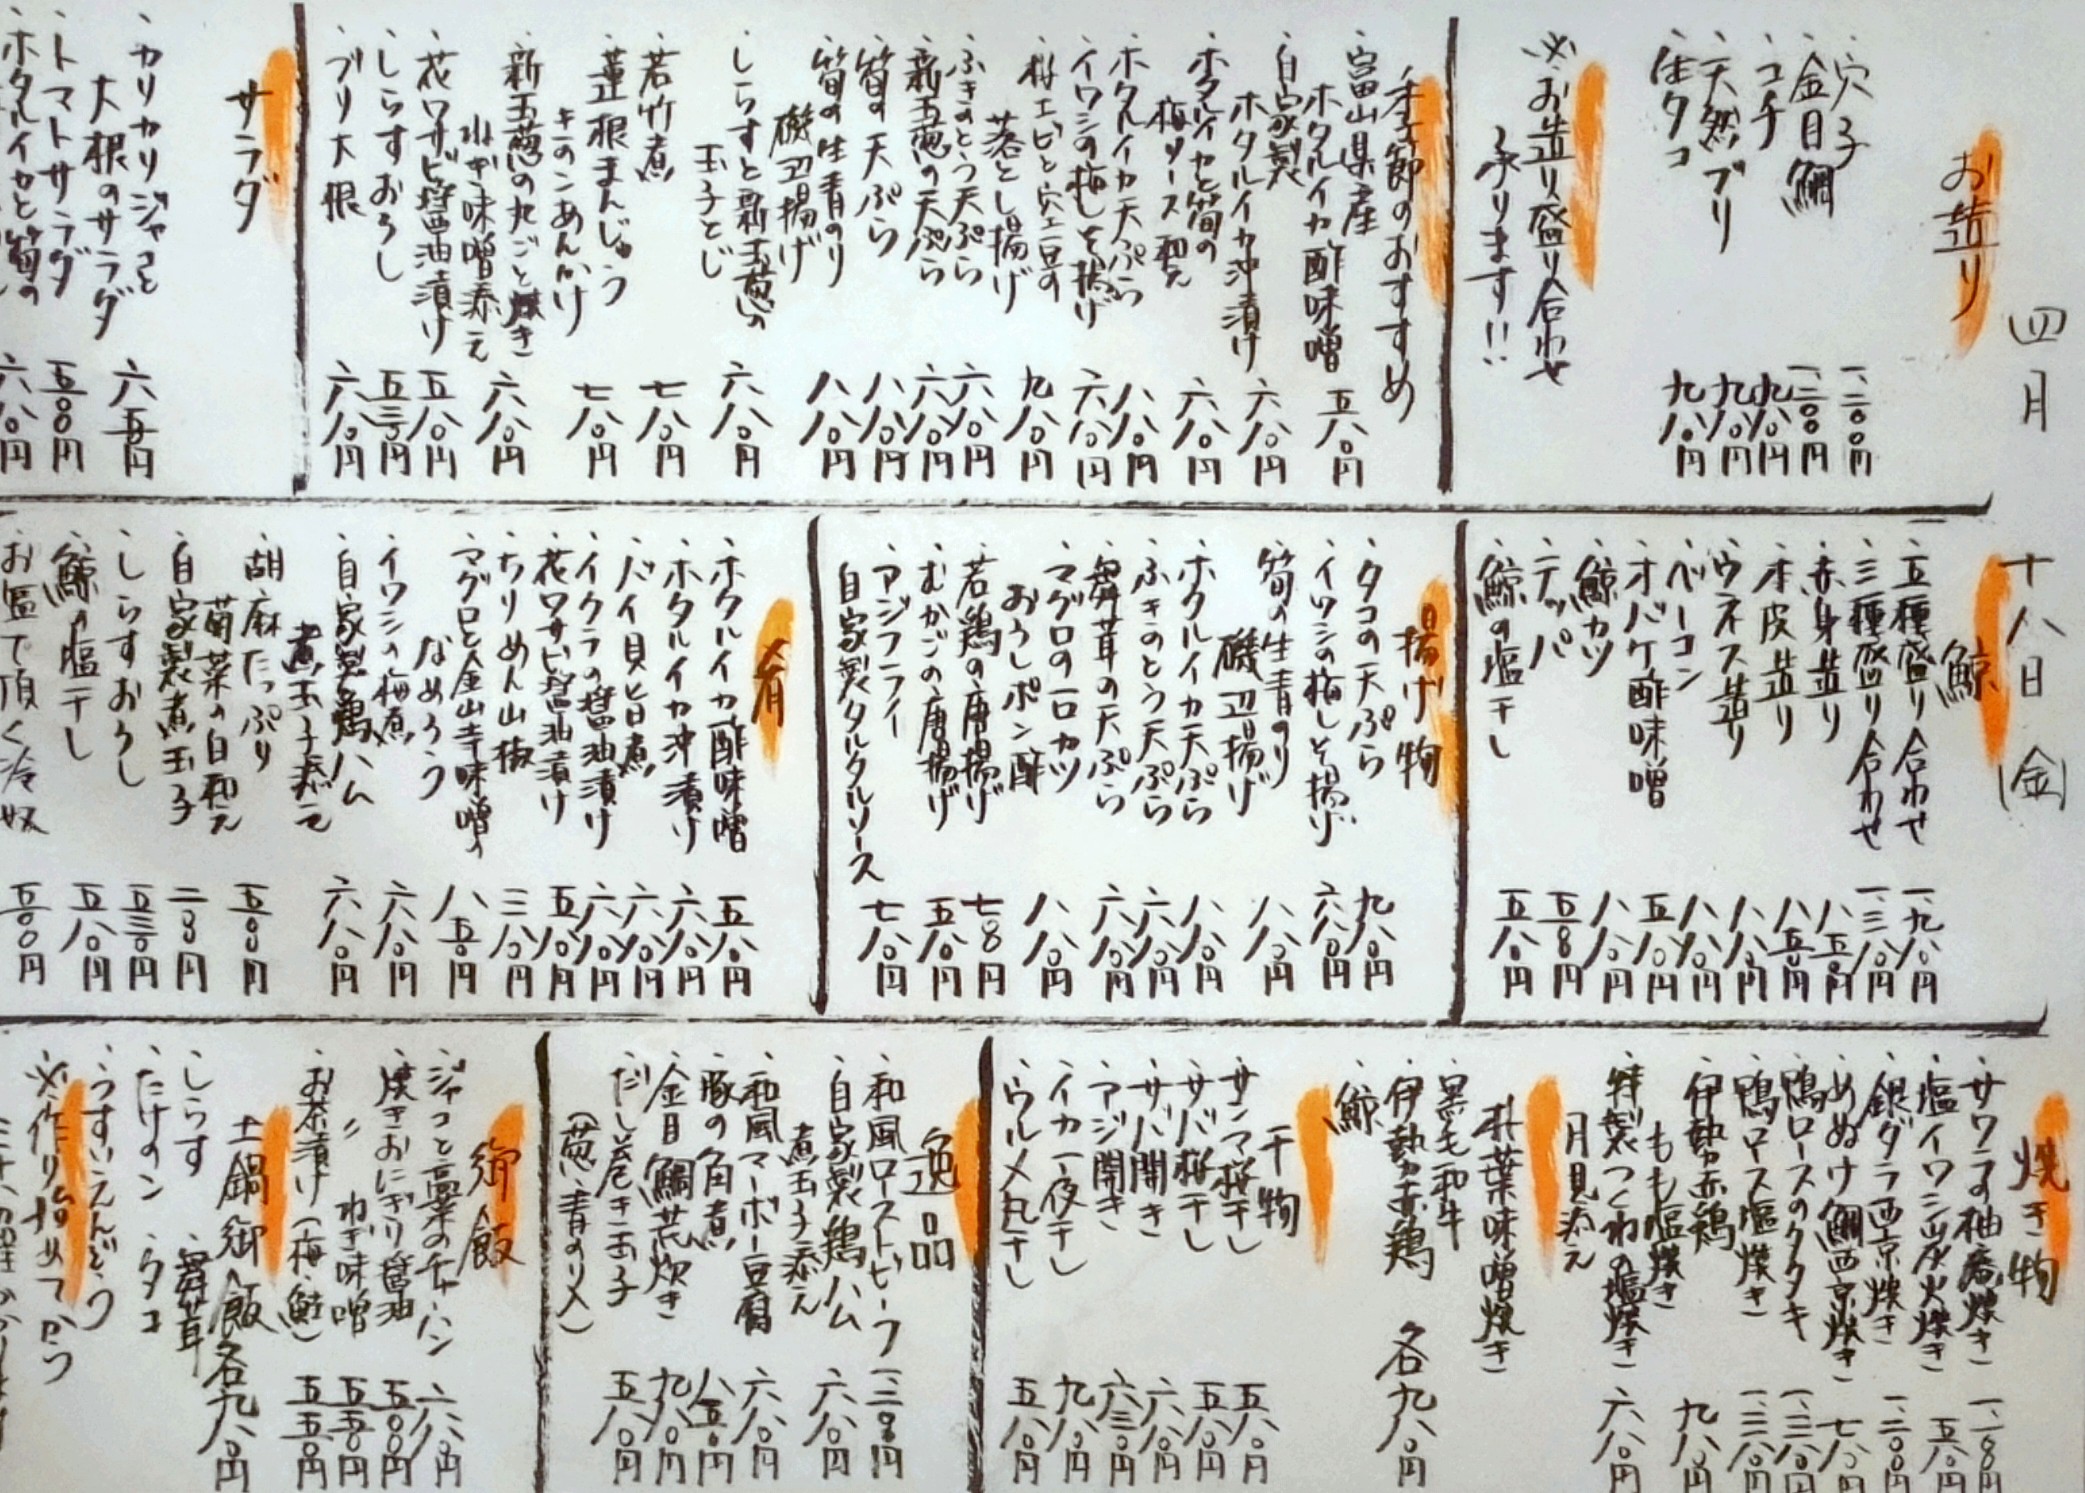 四月 十八日(金)
お造り
・穴子 一、二〇〇円
・金目鯛 一、二〇〇円
・コチ 九八〇円
・天然ブリ 九八〇円
・生タコ 九八〇円
※お造り盛り合わせ
承ります!!
季節のおすすめ
・富山県産
ホタルイカ酢味噌 五八〇円
・自家製
ホタルイカ沖漬け 六八〇円
・ホタルイカと筍の
梅ソース和え 六八〇円
・ホタルイカ天ぷら 八八〇円
・イワシの梅しそ揚げ 六八〇円
・桜エビと空豆の
落とし揚げ 九八〇円
・ふきのとう天ぷら 六八〇円
・新玉葱の天ぷら 六八〇円
・筍の天ぷら 八八〇円
・筍の生青のり
磯辺揚げ 八八〇円
・しらすと新玉葱の
玉子とじ 六八〇円
・若竹煮 七八〇円
・蓮根まんじゅう
キノコあんかけ 七八〇円
・新玉葱の丸ごと焼き
ねぎ味噌添え 六八〇円
・花ワサビ醤油漬け 五八〇円
・しらすおろし 五三〇円
・ブリ大根 六八〇円
サラダ
・カリカリジャコと
大根のサラダ 六五〇円
・トマトサラダ 五〇〇円
・ホタルイカと筍の 六八〇円
鯨
・五種盛り合わせ 一、九八〇円
・三種盛り合わせ 一、三八〇円
・赤身造り 八五〇円
・本皮造り 八五〇円
・ウネス造り 八八〇円
・ベーコン 八八〇円
・オバケ酢味噌 五八〇円
・鯨カツ 八八〇円
・テッパ 五五〇円
・鯨の塩干し 五八〇円
揚げ物
・タコの天ぷら 九八〇円
・イワシの梅しそ揚げ 六八〇円
・筍の生青のり
磯辺揚げ 八八〇円
・ホタルイカ天ぷら 八八〇円
・ふきのとう天ぷら 六八〇円
・舞茸の天ぷら 六八〇円
・マグロの一口カツ
おろしポン酢 八八〇円
・若鶏の唐揚げ 七五〇円
・むかごの唐揚げ 五八〇円
・アジフライ
自家製タルタルソース 七八〇円
肴
・ホタルイカ酢味噌 五八〇円
・ホタルイカ沖漬け 六八〇円
・バイ貝旨煮 六八〇円
・イクラの醤油漬け 六八〇円
・花ワサビ醤油漬け 五八〇円
・ちりめん山椒 三八〇円
・マグロと金山寺味噌の
なめろう 八五〇円
・イワシの梅煮 六八〇円
・自家製鶏ハム
煮玉子添え 六八〇円
・胡麻たっぷり
菊菜の白和え 五〇〇円
・自家製煮玉子 二〇〇円
・しらすおろし 五三〇円
・鯨の塩干し 五八〇円
・お塩で頂く冷奴 五〇〇円
焼き物
・サワラの柚庵焼き
・塩イワシ炭火焼き 五八〇円
・銀ダラ西京焼き 一、二〇〇円
・めぬけ鯛西京焼き 七八〇円
・鴨ロースのタタキ 一、三八〇円
・鴨ロース塩焼き 一、三八〇円
・伊勢赤鶏
もも塩焼き 九八〇円
・特製つくねの塩焼き
月見添え 六八〇円
朴葉味噌焼き
・黒毛和牛
・伊勢赤鶏 各九八〇円
・鯨
干物
・サンマ桜干し 五八〇円
・サバ桜干し 五八〇円
・サバ開き 六八〇円
・アジ開き 六三〇円
・イカ一夜干し 九八〇円
・ウルメ丸干し 五八〇円
逸品
・和風ローストビーフ 一、二〇〇円
・自家製鶏ハム
煮玉子添え 六八〇円
・和風マーボー豆腐 六八〇円
・豚の角煮 八五〇円
・金目鯛荒炊き 九八〇円
・だし巻き玉子
(葱・青のり〆) 五八〇円
御飯
・ジャコと高菜のチャーハン 六八〇円
・焼きおにぎり醤油 五〇〇円
・〃 ねぎ味噌 五五〇円
・お茶漬け(梅・鮭) 五五〇円
土鍋御飯 各九八〇円
・しらす ・舞茸
・たけのこ ・タコ
・うすいえんどう
※作り始めてから